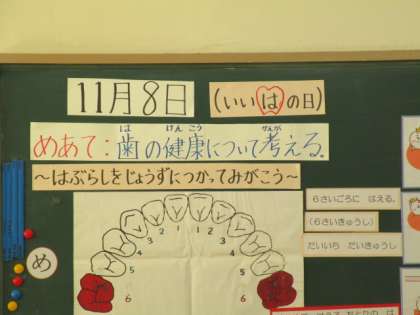 11月8日
(いいはの日)
めあて:歯の健康について考える。
は けんこう かんが
～はぶらしをじょうずにつかってみがこう～
6さいごろに はえる。
(6さいきゅうし)
だいいち だいきゅうし
め
1 1
2 2
3 3
4 4
5 5
6 6